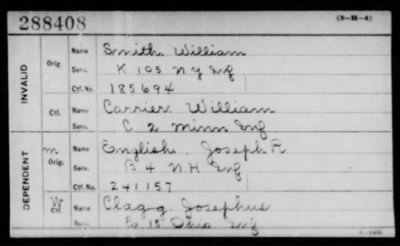 288408
(3-H-6)
INVALID
Orig
Name Smith William
Serv. K 105 N Y Inf
Ctf. No. 185694
Ctf.
Name Carrier William
Serv. C 2 Minn Inf
DEPENDENT
m
Orig.
Name English Joseph R
Serv. B 4 N H Inf
Ctf. No. 241157
W
Ctf.
Name Clagg Josephus
Serv. Co 18 Ohio Inf